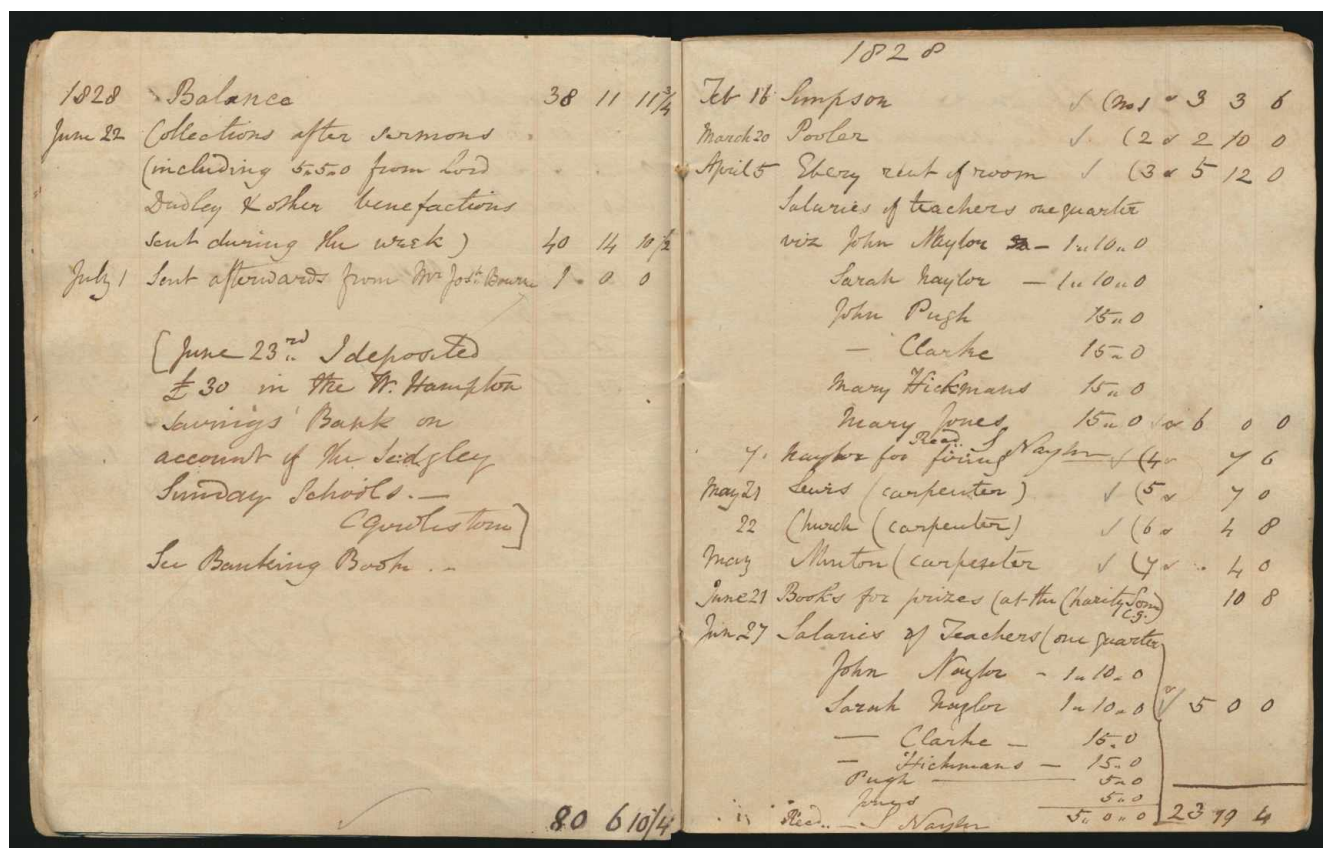 1828 Balance 38 11 11 3/4
June 22 Collections after sermons
(including 5"5"0 from Lord
Dudley & other benefactions
sent during the week) 40 14 10 1/2
July 1 Sent afterwards from Mr Josh Bourne 1 0 0
[June 23rd I deposited
£30 in the W. Hampton
Savings' Bank on
account of the Sedgley
Sunday Schools. —
C Girdlestone]
See Banking Book. —
80 6 10 1/4
1828
Feb 16 Simpson √ (No 1 " 3 3 6
March 20 Pooler √ (2 " 2 10 0
April 5 Ebery rent of room √ (3 " 5 12 0
Salaries of teachers one quarter
viz John Naylor — 1"10"0
Sarah Naylor — 1"10"0
John Pugh 15"0
— Clarke 15"0
Mary Hickmans 15"0
Mary Jones 15"0 6 0 0
Recd. S Naylor
7. Naylor for firing √ (4 " 7 6
May 21 Lewis (carpenter) √ (5 " 7 0
22 Church (carpenter) √ (6 " 4 8
May Minton (carpenter √ (7 " 4 0
June 21 Books for prizes (at the Charity Serm) 10 8
C.G.
Jun 27 Salaries of Teachers (one quarter
John Naylor - 1"10"0
Sarah Naylor 1"10"0 √ 5 0 0
— Clarke — 15"0
— Hickmans — 15"0
Pugh — 5"0
Jones 5"0
Recd. — S Naylor 5"0"0 23 19 4